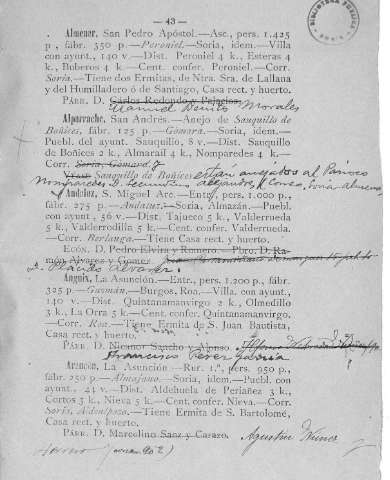 — 43 —
BIBLIOTECA PÚBLICA
Almenar, San Pedro Apóstol.—Asc., pers. 1.425
p., fábr. 350 p.—Peroniel.—Soria, idem.—Villa
con ayunt., 140 v.—Dist. Peroniel 4 k., Esteras 4
k., Buberos 4 k.—Cent. confer. Peroniel.—Corr.
Soria.—Tiene dos Ermitas, de Ntra. Sra. de Lallana
y del Humilladero ó de Santiago, Casa rect. y huerto.
PÁRR. D. Carlos Redondo y Palacios.
Manuel Benito Morales
Alparrache, San Andrés.—Anejo de Sauquillo de
Boñices, fábr. 125 p.—Gómara.—Soria, idem.—
Puebl. del ayunt. Sauquillo, 8 v.—Dist. Sauquillo
de Boñices 2 k., Almarail 4 k., Nomparedes 4 k.—
Corr. Soria, Gómara.
Sauquillo de Boñices están anejados al Párroco
Nomparedes D.
Andaluz, S. Miguel Arc.—Ent., pers. 1.000 p.,
fábr. 275 p.—Andaluz.—Soria, Almazán.—Puebl.
con ayunt., 56 v.—Dist. Tajueco 5 k., Valderrueda
5 k., Valderrodilla 5 k.—Cent. confer. Valderrueda.
—Corr. Berlanga.—Tiene Casa rect. y huerto.
ECÓN. D. Pedro Elvira y Romero.—Pbro. D. Ra-
món Alvarez y Gomez
D. Plácido Alvarez.
Anguix, La Asunción.—Entr., pers. 1.200 p., fábr.
325 p.—Guzmán.—Burgos, Roa.—Villa con ayunt.,
140 v.—Dist. Quintanamanvirgo 2 k., Olmedillo
3 k., La Orra 5 k.—Cent. confer. Quintanamanvirgo.
—Corr. Roa.—Tiene Ermita de S. Juan Bautista,
Casa rect. y huerto.
PÁRR. D. Nicanor Sancho y Alonso.
Francisco Perez Garcia
Arancón, La Asunción.—Rur. 1.ª, pers. 950 p.,
fábr. 250 p.—Almajano.—Soria, idem.—Puebl.
con ayunt., 41 v.—Dist. Aldehuela de Periañez 3
k., Cortos 3 k., Nieva 5 k.—Cent. confer. Nieva.—Corr.
Soria, Aldealpozo.—Tiene Ermita de S. Bartolomé,
Casa rect. y huerto.
PÁRR. D. Marcelino Sanz y Carazo. Agustin Nuñez